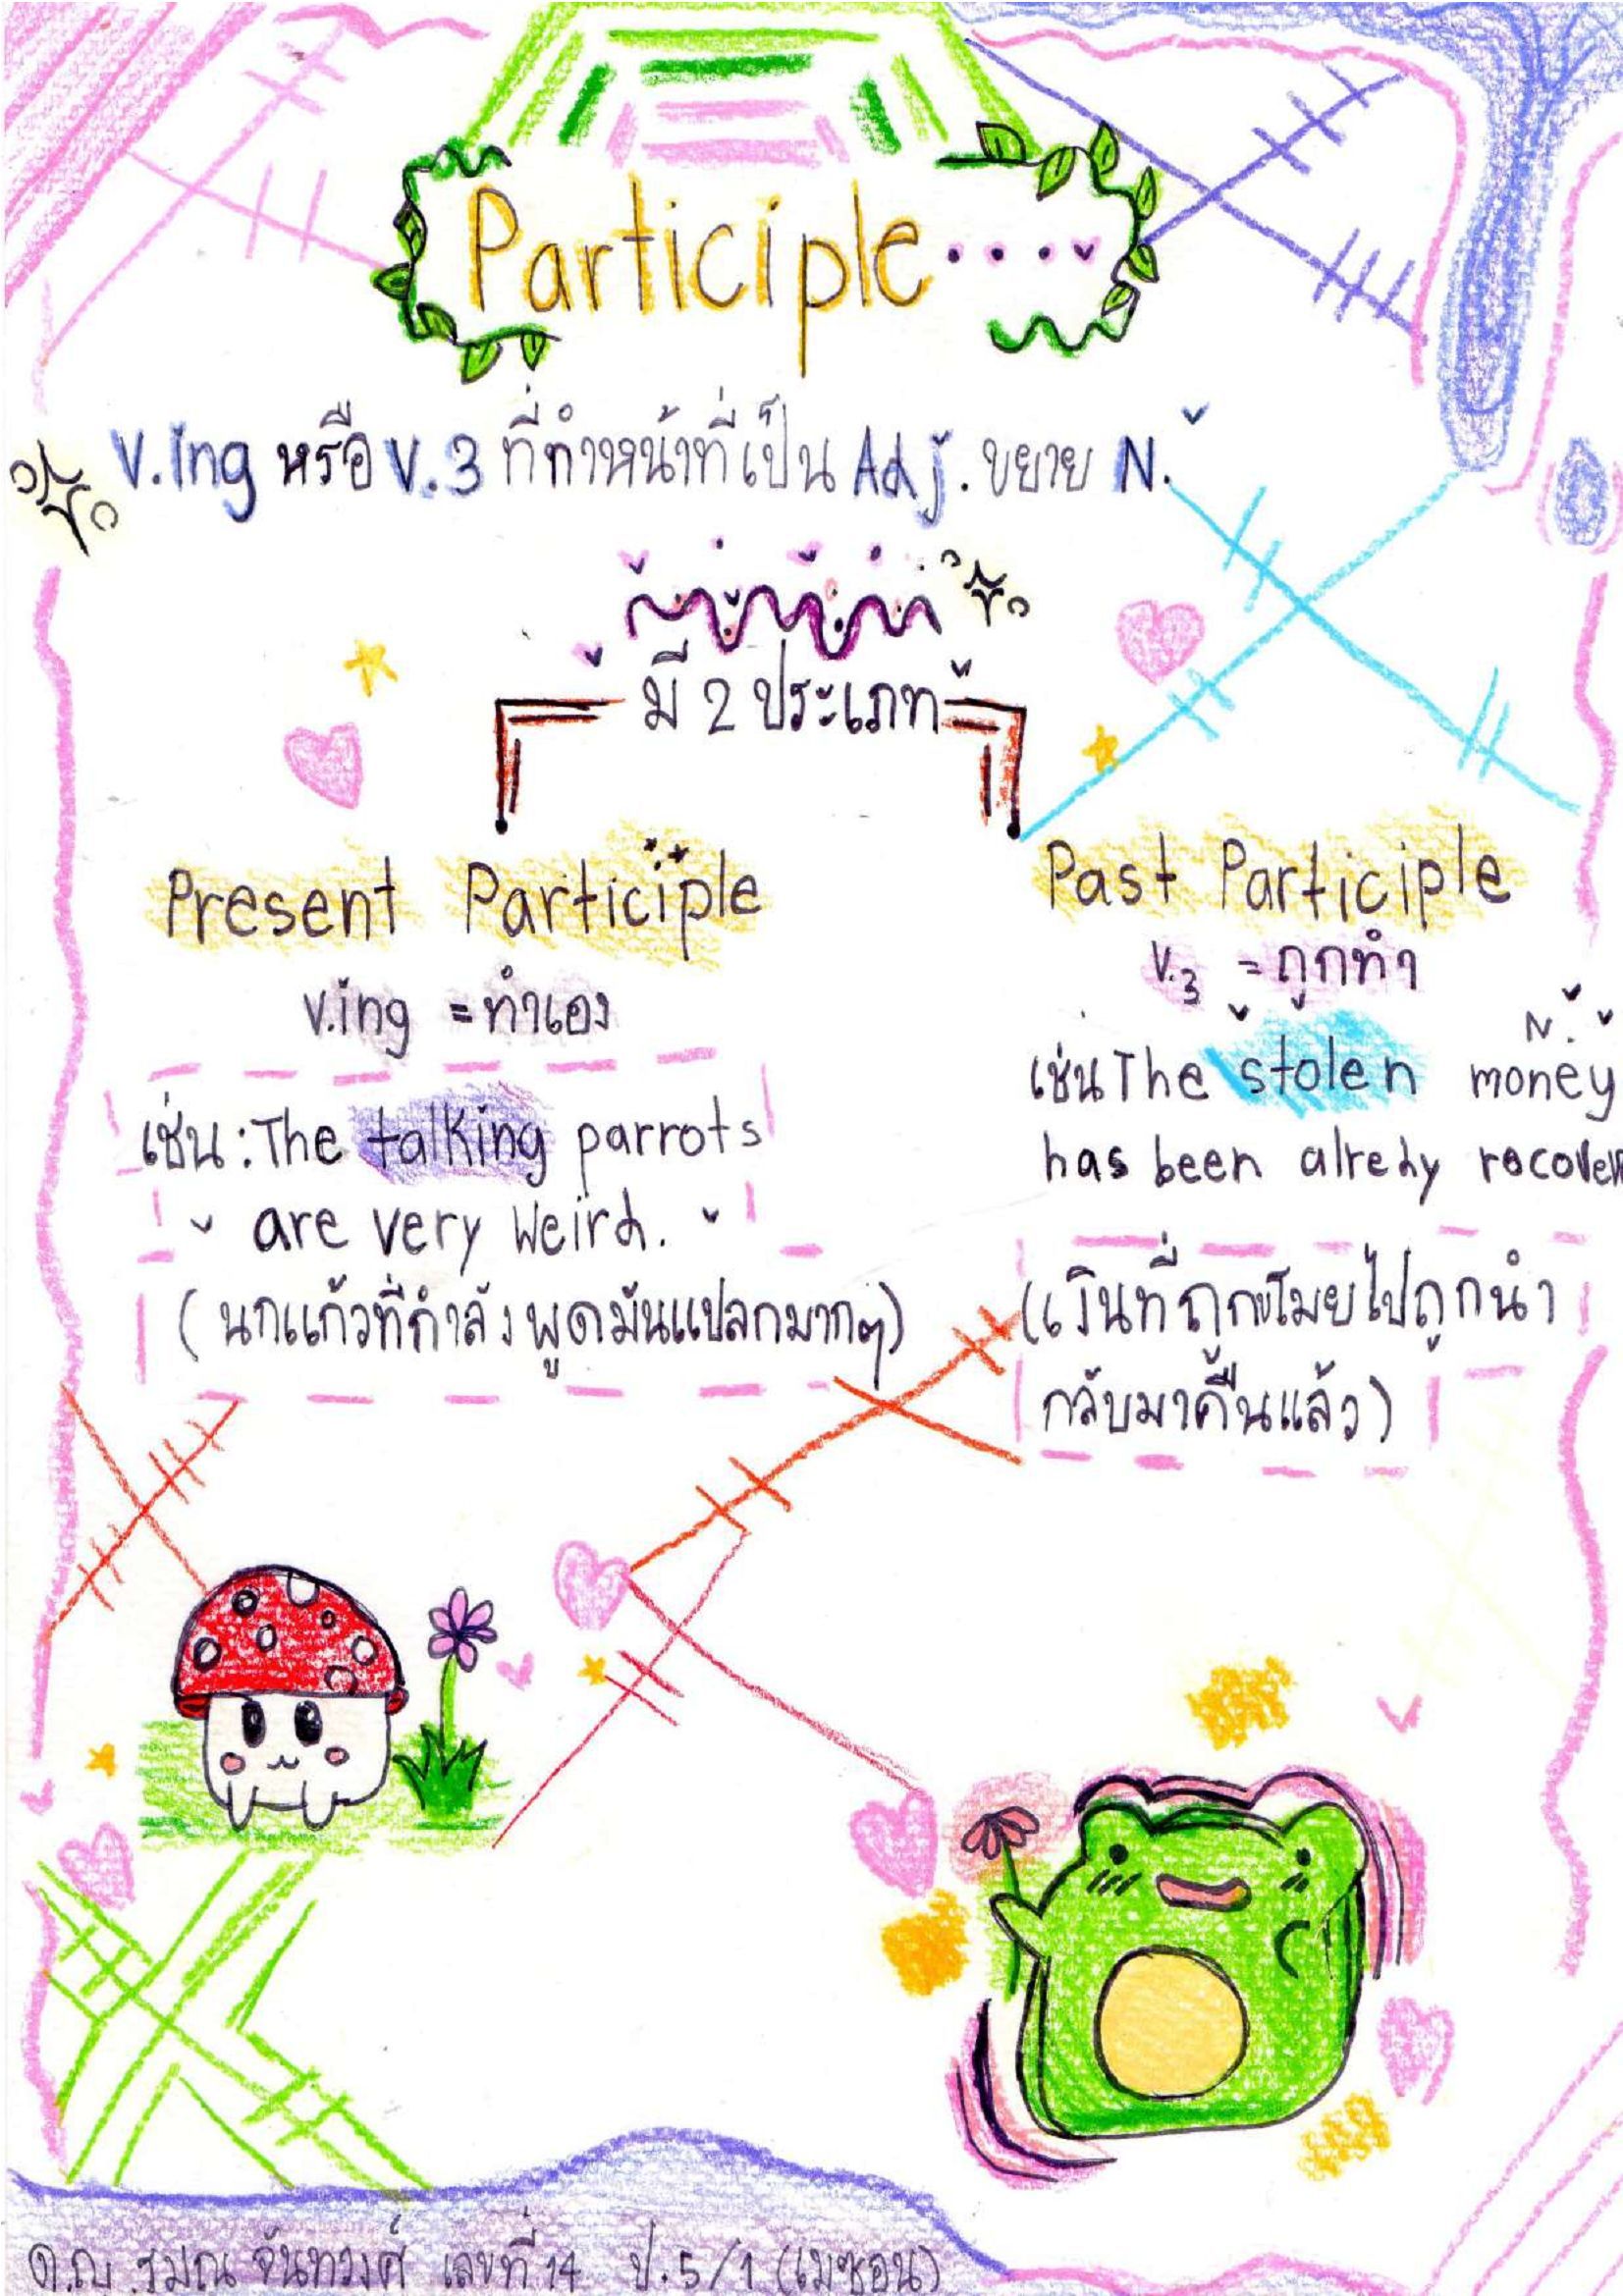 Participle
V.ing หรือ V.3 ที่ทำหน้าที่เป็น Adj. ขยาย N.
มี 2 ประเภท
Present Participle
V.ing = ทำเอง
เช่น : The talking parrots
are very weird.
(นกแก้วที่กำลังพูดมันแปลกมากๆ)
Past Participle
V.3 = ถูกทำ
N.
เช่น The stolen money
has been alredy
(เงินที่ถูกขโมยไปถูกนำ
กลับมาคืนแล้ว)
ด.ญ. รมณ จันทวงศ์ เลขที่ 14 ป.5/1 (เมซอน)